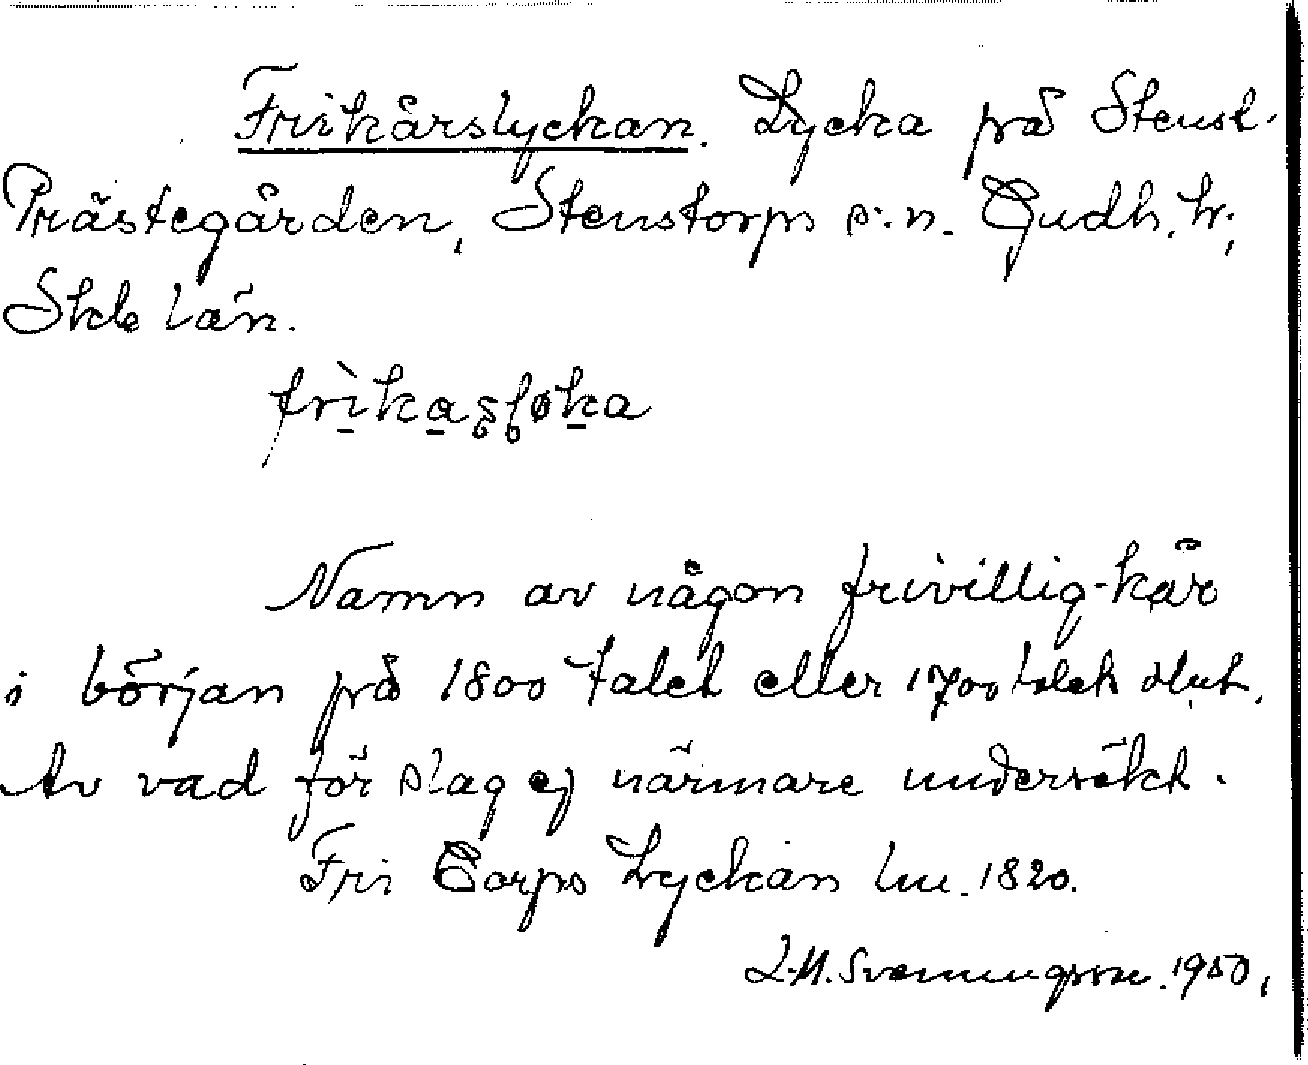 Frikårslyckan. Lycka på Stenst.
Prästegården, Stenstorps s:n. Gudh. hr;
Skbs län.
Namn av någon frivillig-kår
i början på 1800 talet eller 1700 talets slut.
Av vad för slag ej närmare undersökt.
Fri Corps Lyckan lm. 1820.
L.M. Svenungsson. 1950.